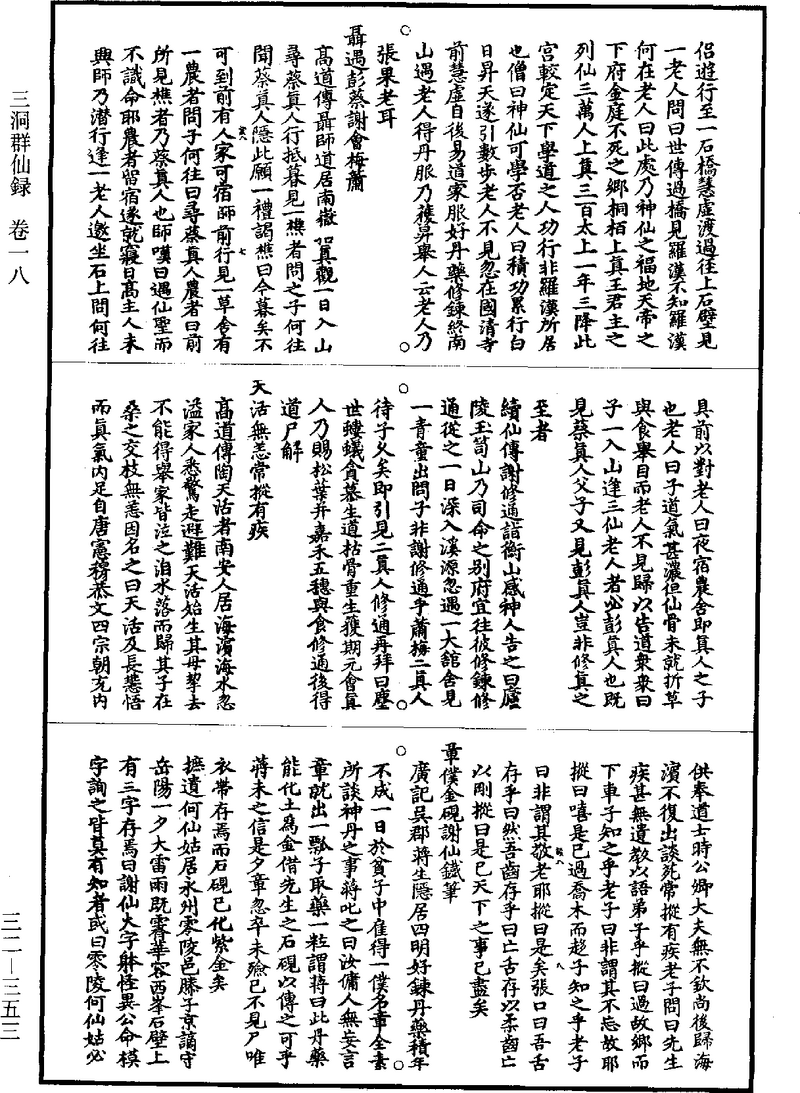 三洞群仙録　卷一八
三二—三五三
侣遊行至一石橋慧虚渡過徃上石壁見
一老人問曰世傳過橋見羅漢不知羅漢
何在老人曰此處乃神仙之福地天帝之
下府金庭不死之鄉桐栢上真王君主之
列仙三萬人上真三百太上一年三降此
宮較定天下學道之人功行非羅漢所居
也僧曰神仙可學否老人曰積功累行白
日昇天遂引數步老人不見忽在國清寺
前慧虚自後易道家服好丹藥修鍊終南
山遇老人得丹服乃獲昇舉人云老人乃
張果老耳
聶遇彭蔡謝會梅蕭
高道傳聶師道居南嶽招真觀一日入山
尋蔡真人行抵暮見一樵者問之子何往
聞蔡真人隱此願一禮謁樵曰今暮矣不
可到前有人家可宿師前行見一草舍有
一農者問子何往曰尋蔡真人農者曰前
所見樵者乃蔡真人也師嘆曰遇仙聖而
不識命耶農者留宿遂就寢日髙主人未
興師乃潜行逢一老人邀坐石上問何往
具前以對老人曰夜宿農舍即真人之子
也老人曰子道氣甚濃但仙骨未就折草
與食舉目而老人不見歸以告道衆衆曰
子一入山逢三仙老人者必彭真人也既
見蔡真人父子又見彭真人豈非修真之
至者
續仙傳謝修通詣衡山感神人告之曰廬
陵玉笥山乃司命之别府宜往彼修鍊修
通從之一日深入溪源忽遇一大舘舍見
一青童出問子非謝修通乎蕭梅二真人
待子久矣即引見二真人修通再拜曰塵
世螻蟻貪慕生道枯骨重生獲期元會真
人乃賜松葉并嘉禾五穗與食修通後得
道尸解
天活無恙常摐有疾
髙道傳陶天活者南安人居海濱海水忽
溢家人悉驚走避難天活始生其母挈去
不能得舉家皆泣之洎水落而歸其子在
桑之交枝無恙因名之曰天活及長慧悟
而真氣内足自唐憲穆恭文四宗朝充内
供奉道士時公卿大夫無不欽尚後歸海
濱不復出談死常摐有疾老子問曰先生
疾甚無遺教以語弟子乎摐曰過故鄉而
下車子知之乎老子曰非謂其不忘故耶
摐曰嘻是已過喬木而趍子知之乎老子
曰非謂其敬老耶摐曰是矣張口曰吾舌
存乎曰然吾齒存乎曰亡舌存以柔齒亡
以剛摐曰是已天下之事已盡矣
章僕金硯謝仙鐵筆
廣記吳郡蔣生隱居四明好鍊丹藥積年
不成一日於貧子中隺得一僕名章全素
所談神丹之事蔣叱之曰汝傭人無妄言
章就出一瓢子取藥一粒謂蔣曰此丹藥
能化土爲金借先生之石硯以傳之可乎
蔣未之信是夕章忽卒未殮已不見尸唯
衣帶存焉而石硯已化紫金矣
摭遺何仙姑居永州零陵邑滕子京謫守
岳陽一夕大雷雨既霽華容西峯石壁上
有三字存焉曰謝仙火字躰怪異公命模
字詢之皆莫有知者或曰零陵何仙姑必